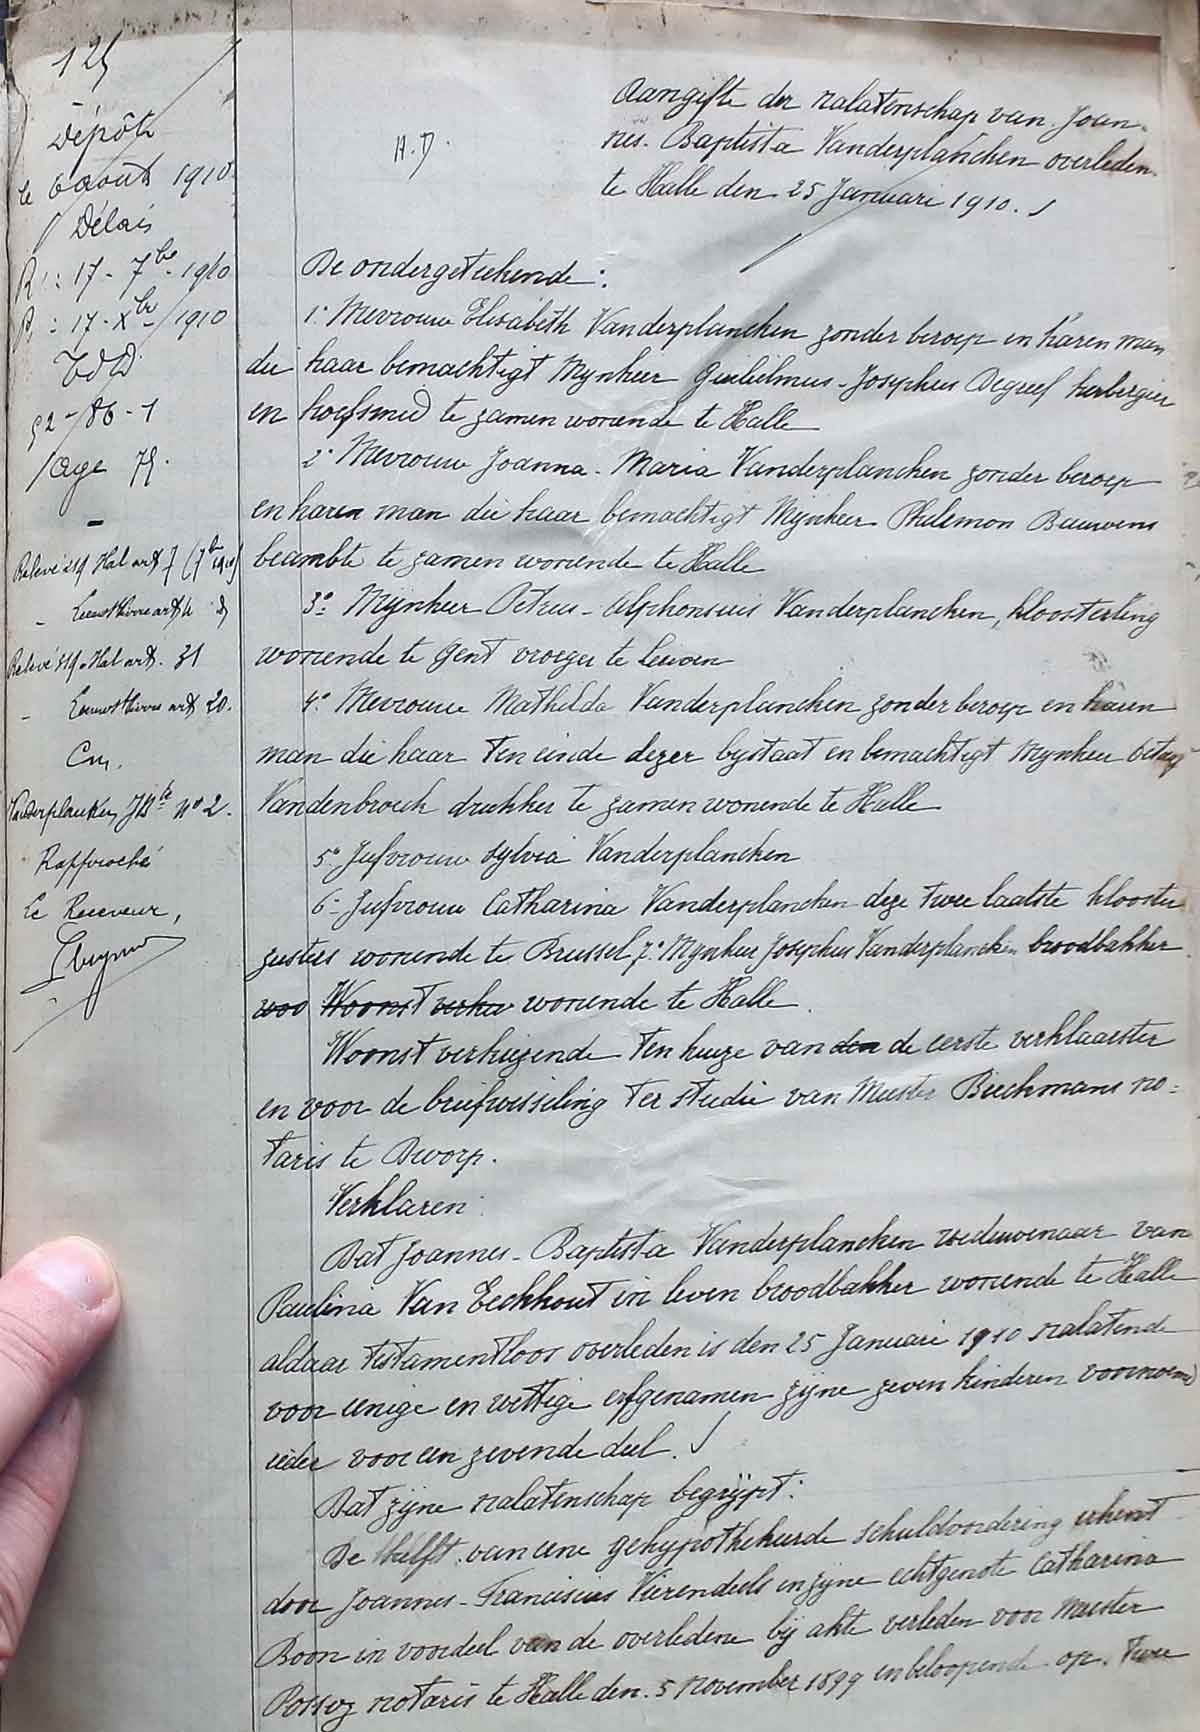 125
Dépôt
le 6 août 1910
Délais
R : 17 - 7bre 1910
P : 17 - Xbre 1910
92 - 86 - 1
Age 75.
Relevé 219 Hal art 7 (7bre 1910)
- Leeuw St Pierre art 4
Relevé 219 Hal art. 31
- Leeuw St Pierre art 20.
Cm.
Vanderplancken JBte no 2.
Rapproché
Le Receveur,
H.D.
Aangifte der nalatenschap van Joan-
nes Baptista Vanderplancken overleden
te Halle den 25 Januari 1910.
De ondergeteekende :
1° Mevrouw Elisabeth Vanderplancken zonder beroep en haren man
die haar bemachtigt Mynheer Guilielmus-Josephus Degreef herbergier
en hoefsmid te zamen wonende te Halle
2° Mevrouw Joanna-Maria Vanderplancken zonder beroep
en haren man die haar bemachtigt Mijnheer Philemon Bauwens
beambte te zamen wonende te Halle
3° Mijnheer Petrus-Alphonsius Vanderplancken, kloosterling
wonende te Gent vroeger te Leuven
4° Mevrouw Mathilda Vanderplancken zonder beroep en haren
man die haar ten einde dezer bystaat en bemachtigt Mynheer
Vandenbrouck drukker te zamen wonende te Halle
5° Jufvrouw Sylvia Vanderplancken
6° Jufvrouw Catharina Vanderplancken deze twee laatste klooster
zusters wonende te Brussel 7° Mynheer Josephus Vanderplancken broodbakker
woo Woonst verkie wonende te Halle
Woonst verkiezende ten huize van den de eerste verklaarster
en voor de briefwisseling ter studie van Meester Bieckmans no-
taris te Dworp.
Verklaren :
Dat Joannes-Baptista Vanderplancken weduwenaar van
Paulina Van Eeckhout in leven broodbakker wonende te Halle
aldaar testamentloos overleden is den 25 Januari 1910 nalatende
voor eenige en wettige erfgenamen zijne zeven kinderen voornoemd
ieder voor een zevende deel.
Dat zijne nalatenschap begrijpt :
De helft van eene gehypothekeerde schuldvordering erkent
door Joannes-Franciscus Vierendeels en zijne echtgenote Catharina
Boon in voordeel van de overledene bij akte verleden voor Meester
Possoz notaris te Halle den 5 November 1899 en beloopende op twee